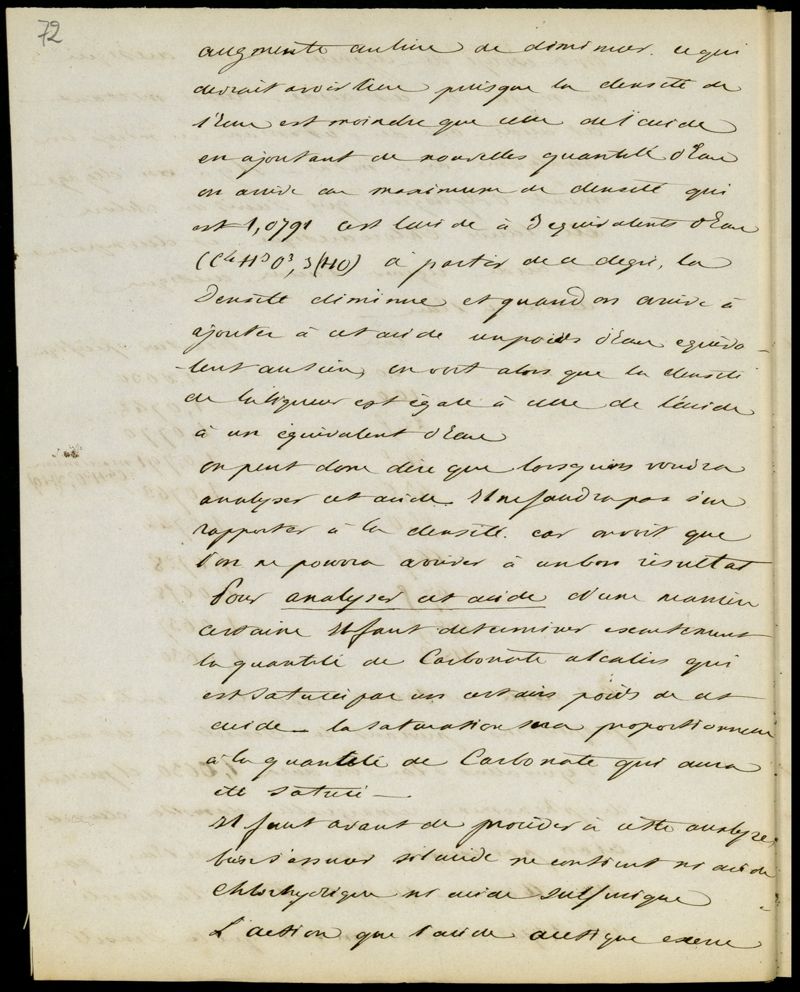 72
augmente au lieu de diminuer. ce qui
devrait avoir lieu puisque la densité de
l'Eau est moindre que celle de l'acide
en ajoutant de nouvelles quantité d'Eau
on arrive au maximum de densité qui
est 1,0791 c'est l'acide à 3 équivalents d'Eau
(C4H3O3, 3(HO) à partir de ce degré, la
Densité diminue et quand on arrive à
ajouter à cet acide un poids d'Eau équiva-
lent au sien, on voit alors que la densité
de la liqueur est égale à celle de l'acide
à un équivalent d'Eau
on peut donc dire que lorsqu'on voudra
analyser cet acide Il ne faudra pas s'en
rapporter à la densité. car on voit que
l'on ne pourra arriver à un bon résultat
Pour analyser cet acide d'une manière
certaine Il faut déterminer exactement
la quantité de Carbonate alcalin qui
est saturée par un certain poids de cet
acide — la saturation sera proportionnelle
à la quantité de Carbonate qui aura
été saturé —
Il faut avant de procéder à cette analyse,
bien s'assurer si l'acide ne contient ni acide
chlorhydrique ni acide sulfurique
L'action que l'acide acétique exerce